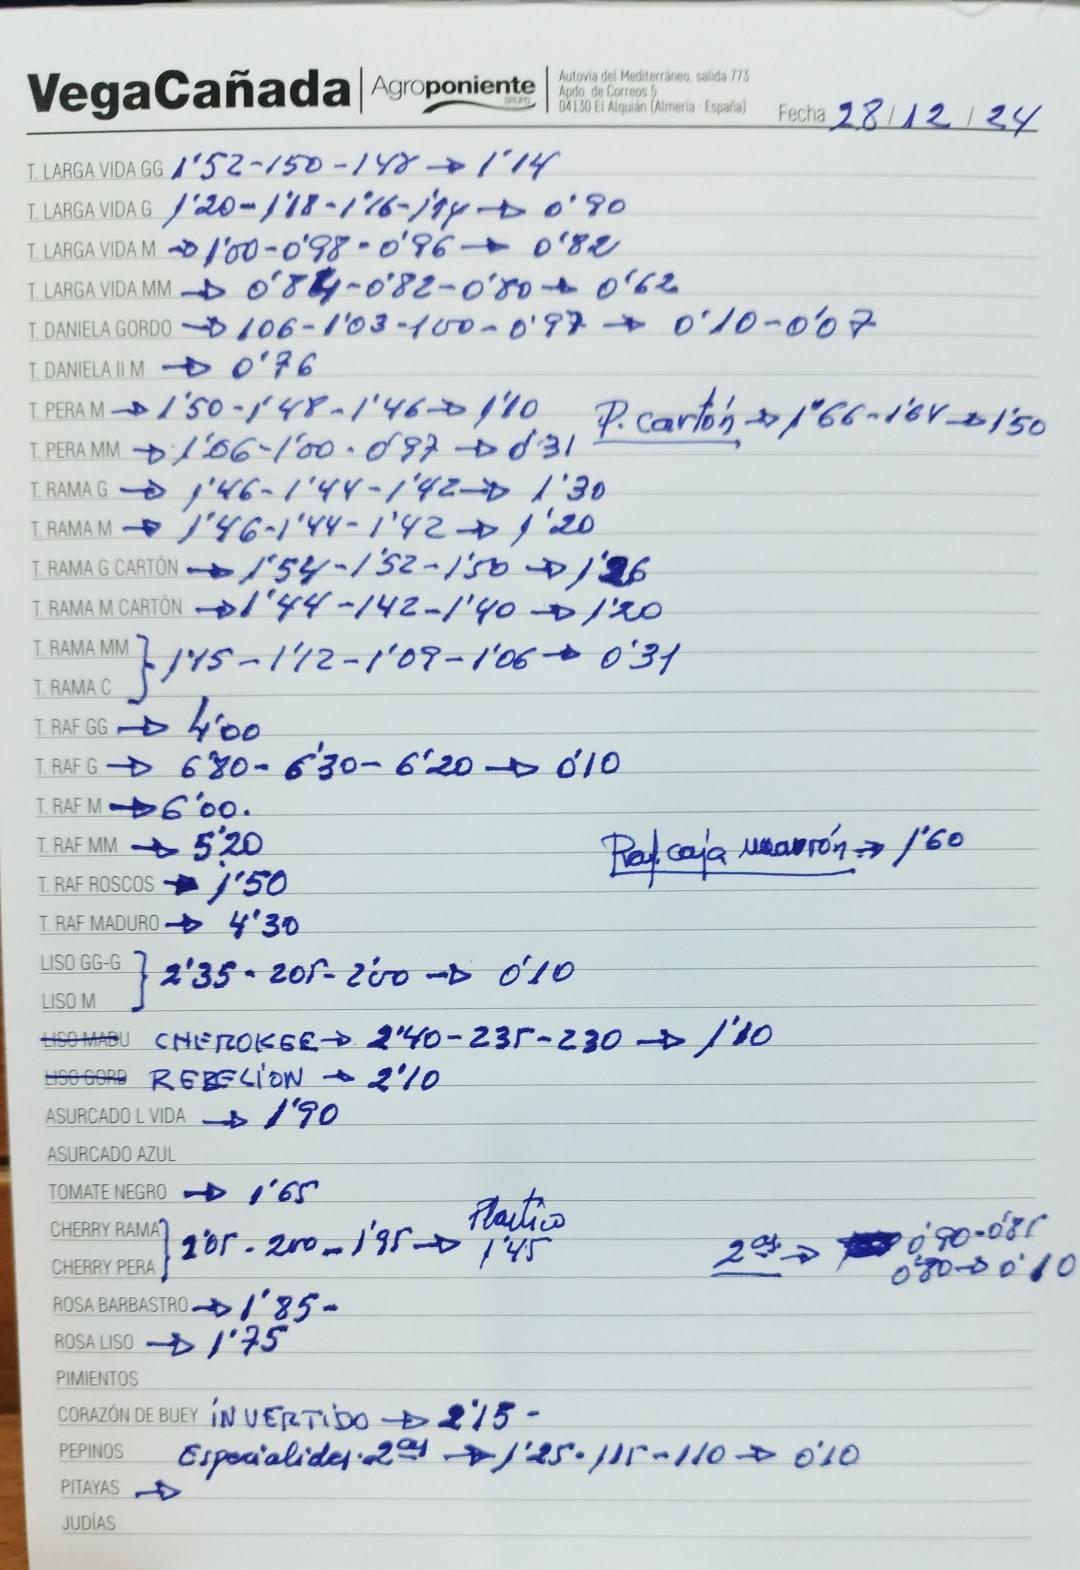 VegaCañada | Agroponiente GRUPO | Autovía del Mediterráneo, salida 773
Apdo. de Correos 5
04130 El Alquián (Almería - España)
Fecha 28/12/24
T. LARGA VIDA GG 1'52-150-148 → 1'14
T. LARGA VIDA G 1'20-1'18-1'16-1'14 → 0'90
T. LARGA VIDA M → 1'00-0'98-0'96 → 0'82
T. LARGA VIDA MM → 0'84-0'82-0'80 → 0'62
T. DANIELA GORDO → 106-1'03-100-0'97 → 0'10-0'07
T. DANIELA II M → 0'76
T. PERA M → 1'50-1'48-1'46 → 1'10 P. cartón → 1'66-1'64 → 1'50
T. PERA MM → 1'06-1'00-0'97 → 0'31
T. RAMA G → 1'46-1'44-1'42 → 1'30
T. RAMA M → 1'46-1'44-1'42 → 1'20
T. RAMA G CARTÓN → 1'54-1'52-1'50 → 1'26
T. RAMA M CARTÓN → 1'44-142-1'40 → 1'20
T. RAMA MM } 1'15-1'12-1'09-1'06 → 0'31
T. RAMA C
T. RAF GG → 4'00
T. RAF G → 6'80-6'30-6'20 → 0'10
T. RAF M → 6'00.
T. RAF MM → 5'20 Raf. caja marrón → 1'60
T. RAF ROSCOS → 1'50
T. RAF MADURO → 4'30
LISO GG-G } 2'35-205-2'00 → 0'10
LISO M
LISO MADU CHEROKEE → 2'40-235-230 → 1'10
LISO GORD REBELIÓN → 2'10
ASURCADO L VIDA → 1'90
ASURCADO AZUL
TOMATE NEGRO → 1'65
CHERRY RAMA } 2'05-200-1'95 → Plastico 1'45 2as → 0'90-0'85
CHERRY PERA 0'80 → 0'10
ROSA BARBASTRO → 1'85-
ROSA LISO → 1'75
PIMIENTOS
CORAZÓN DE BUEY INVERTIDO → 2'15-
PEPINOS Especialides. 2as → 1'25-115-110 → 0'10
PITAYAS →
JUDÍAS